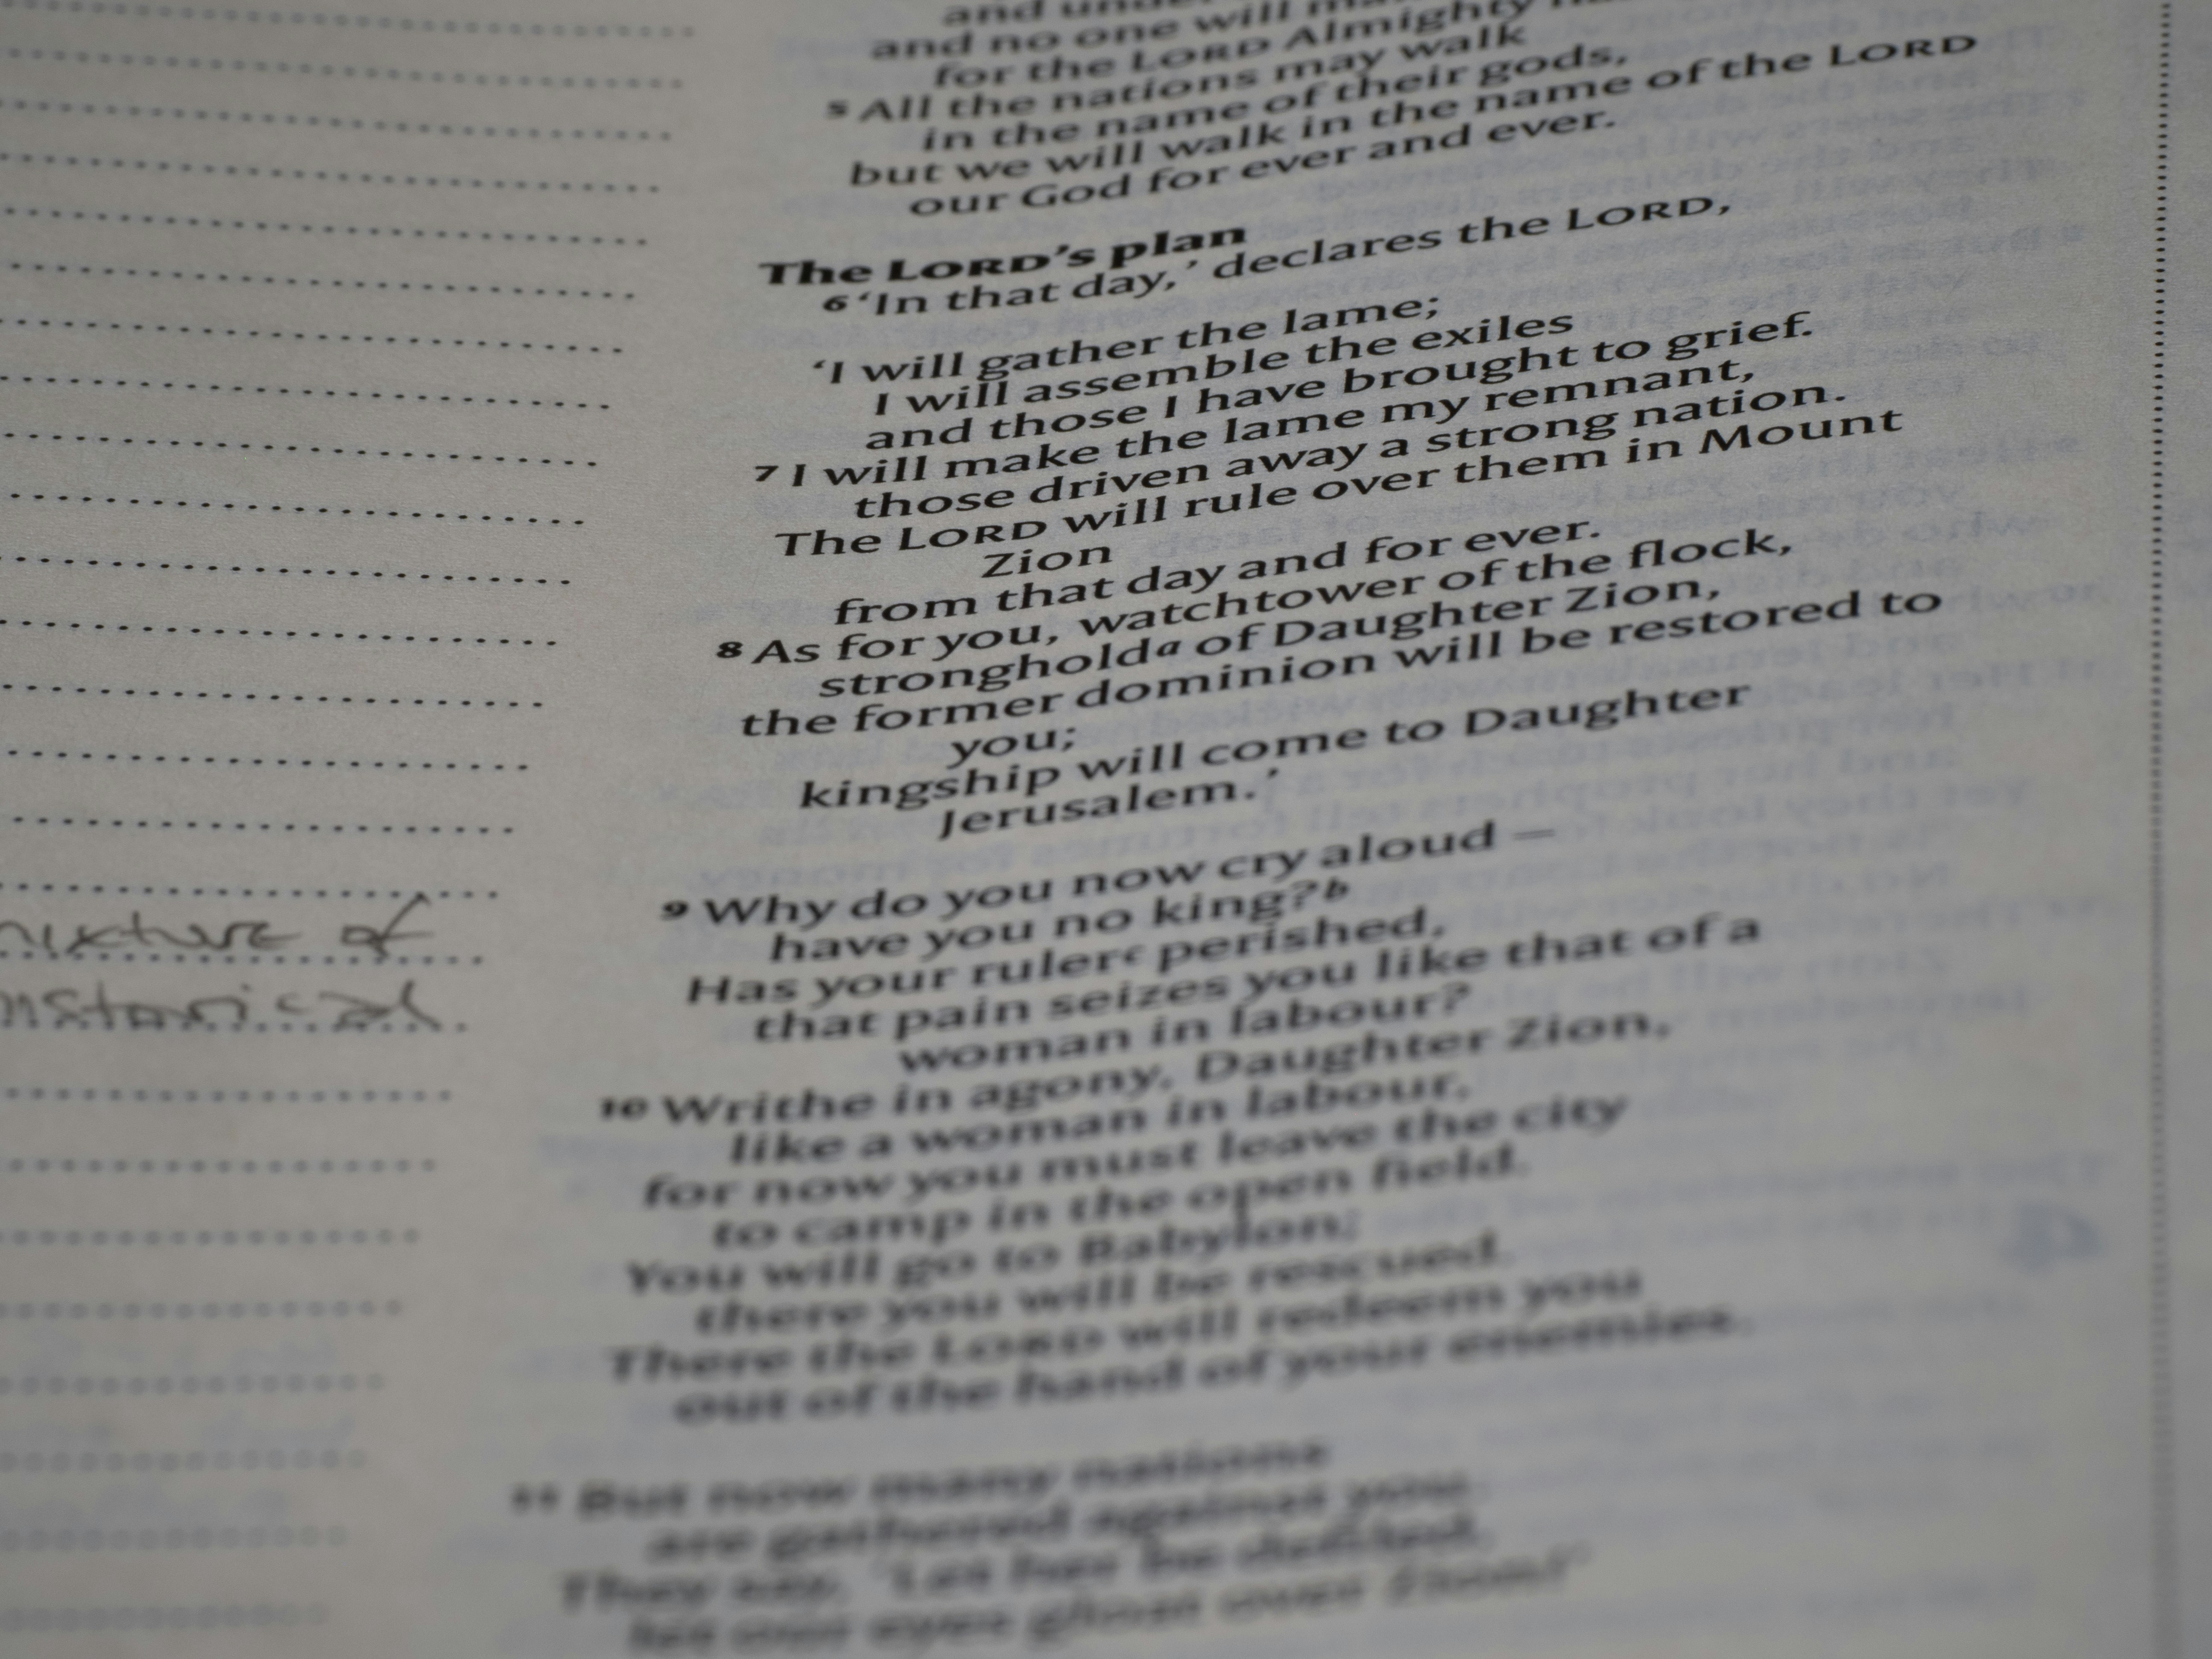 and no one will
for the LORD Almighty
5 All the nations may walk
in the name of their gods,
but we will walk in the name of the LORD
our God for ever and ever.
The LORD’s plan
6 ‘In that day,’ declares the LORD,
‘I will gather the lame;
I will assemble the exiles
and those I have brought to grief.
7 I will make the lame my remnant,
those driven away a strong nation.
The LORD will rule over them in Mount
Zion
from that day and for ever.
8 As for you, watchtower of the flock,
stronghold a of Daughter Zion,
the former dominion will be restored to
you;
kingship will come to Daughter
Jerusalem.’
9 Why do you now cry aloud –
have you no king? b
Has your ruler c perished,
that pain seizes you like that of a
woman in labour?
10 Writhe in agony, Daughter Zion,
like a woman in labour,
for now you must leave the city
to camp in the open field.
You will go to Babylon;
there you will be rescued.
There the LORD will redeem you
out of the hand of your enemies.
11 But now many nations
are gathered against you.
They say, ‘Let her be defiled,
let our eyes gloat over Zion!’
of